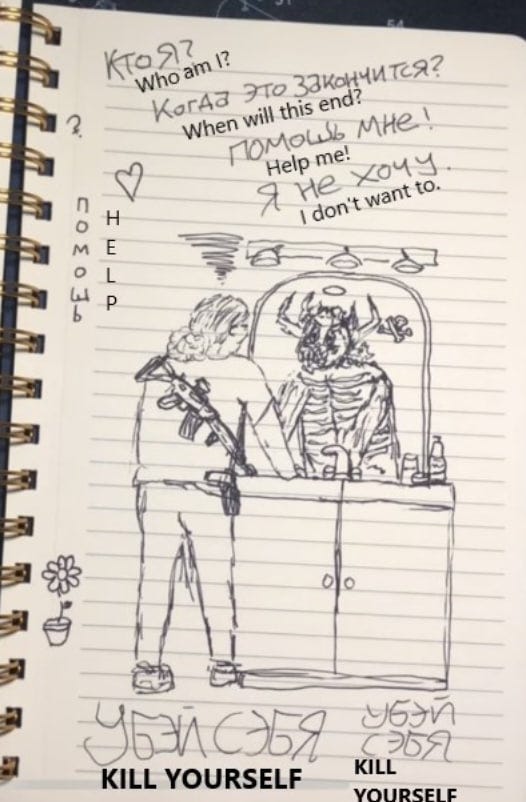 54
Кто я?
Who am I?
Когда это закончится?
When will this end?
Помошь мне!
Help me!
Я не хочу.
I don't want to.
?
помошь
HELP
УБЭЙ СЭБЯ
KILL YOURSELF
УБЭЙ
СЭБЯ
KILL
YOURSELF